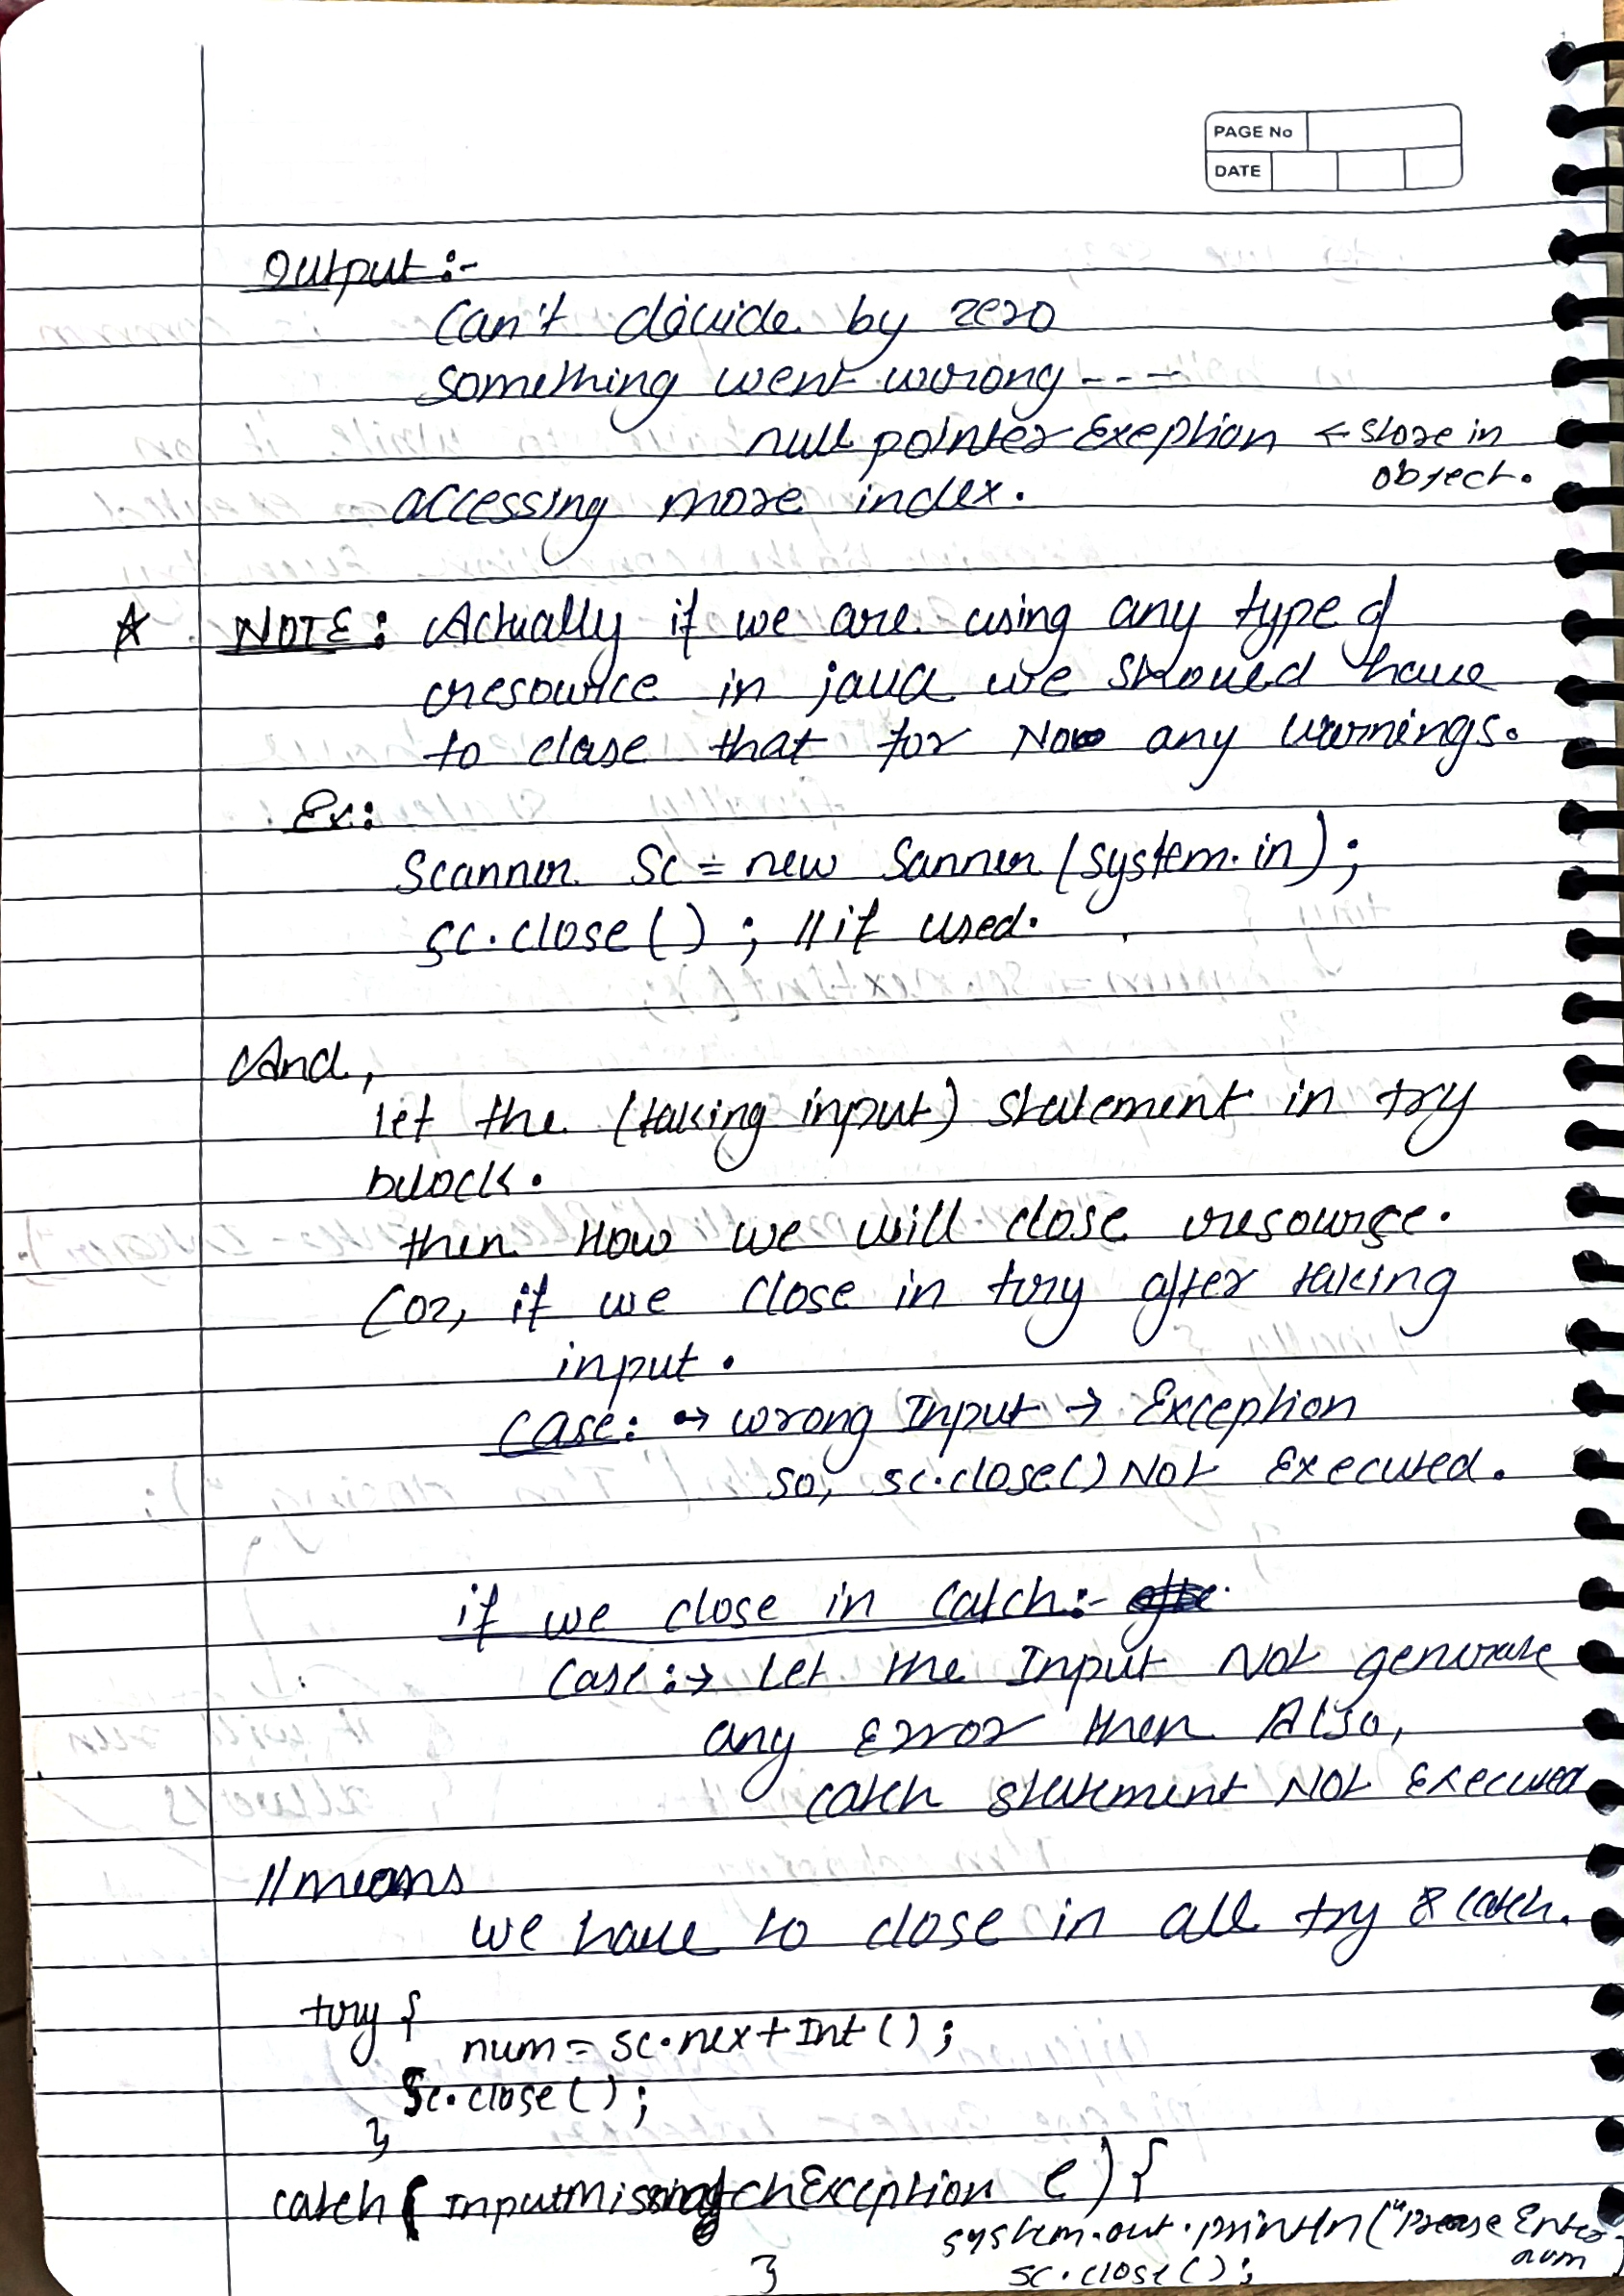 PAGE No
DATE
Output :-
Can't divide by zero
something went wrong ----
null pointer Exeption ← store in
object.
accessing more index.
☆ NOTE: Actually if we are using any type of
resource in java we should have
to close that for No any warnings.
Ex:
Scanner Sc = new Sanner (system.in);
sc.close(); //if used.
And,
let the (taking input) statement in try
block.
then How we will close resource.
(or, if we close in try after taking
input.
Case: → wrong Input → Exception
so, sc.close() Not Executed.
if we close in catch:-
Case:→ Let the Input Not generate
any Error then Also,
catch statement Not Executed
//means
we have to close in all try & catch.
try {
num = sc.nextInt();
Sc.close();
}
catch ( InputMismatchException e) {
system.out.println("Please Enter
num
sc.close();
}